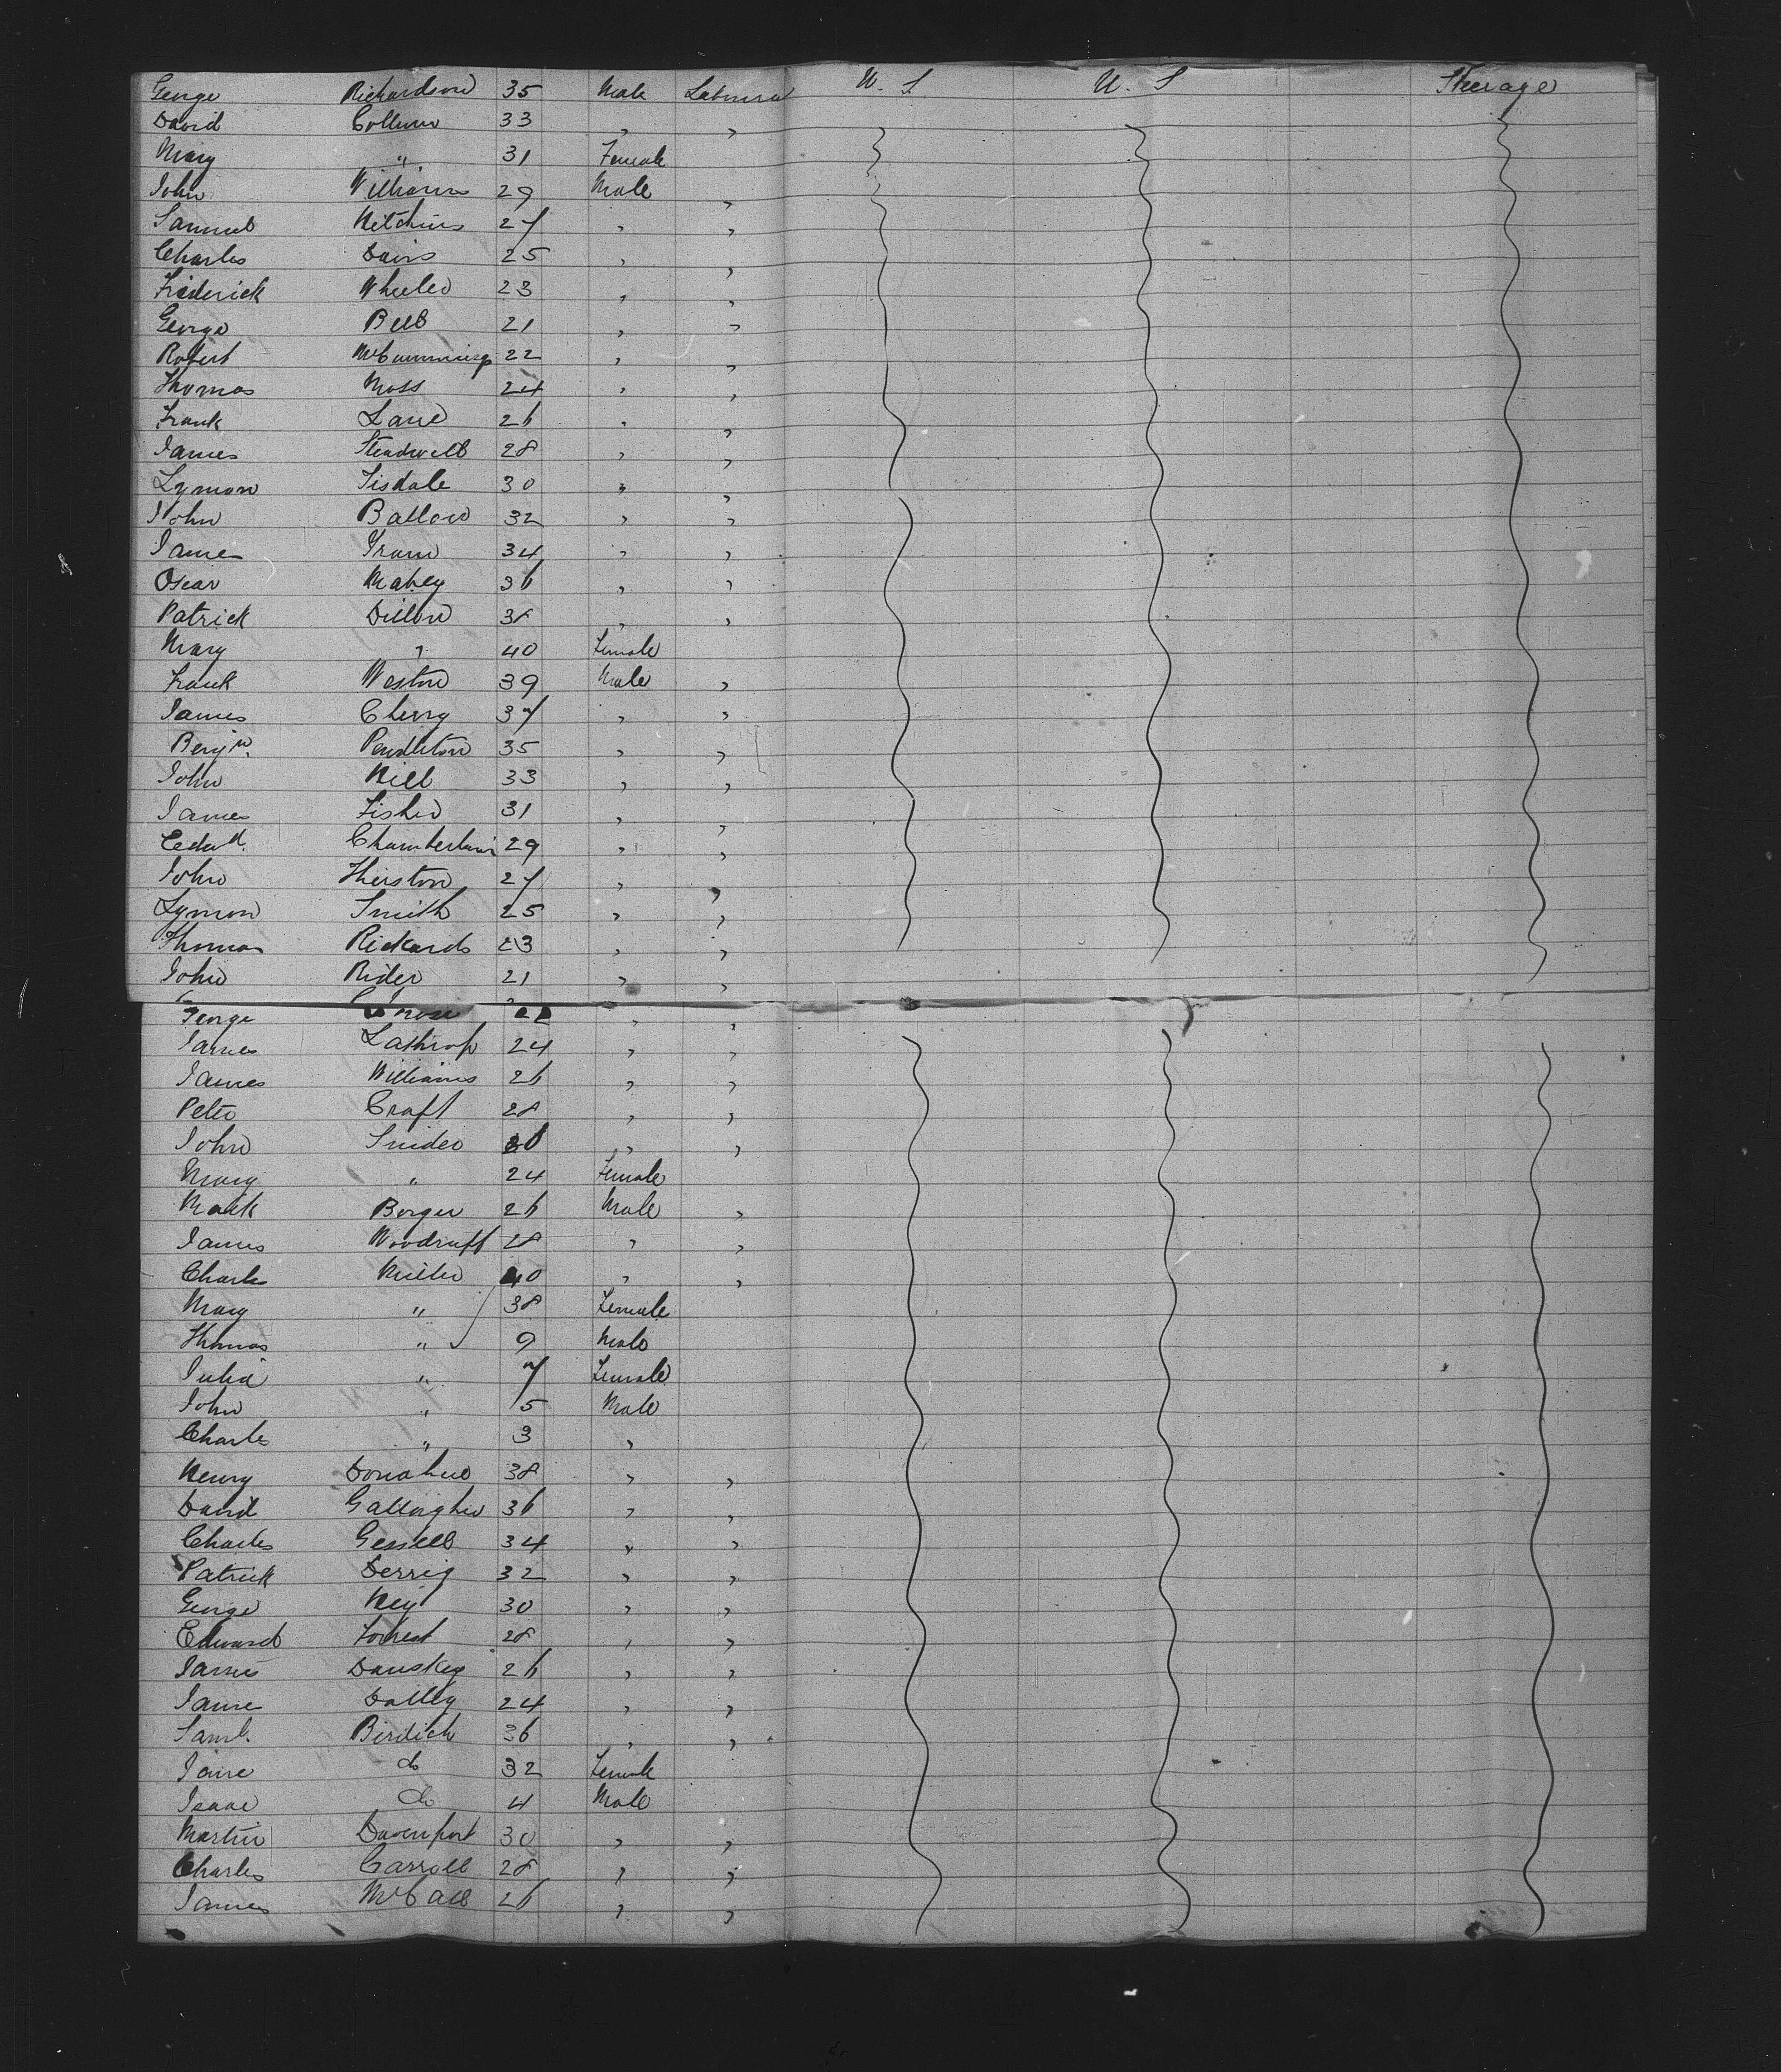 George Richardson 35 Male Laborer U. S U. S Steerage
David Collum 33 " "
Mary " 31 Female
John Williams 29 Male "
Samuel Hitchins 27 " "
Charles Davis 25 " "
Frederick Wheeler 23 " "
George Bell 21 " "
Robert McCummings 22 " "
Thomas Moss 24 " "
Frank Lane 26 " "
James Steadwell 28 " "
Lymon Tisdale 30 " "
John Ballow 32 " "
James 34 " "
Oscar Mabey 36 " "
Patrick Dillon 38 " "
Mary " 40 Female
Frank Weston 39 Male "
James Cherry 37 " "
Benjn. Pendleton 35 " "
John Hill 33 " "
James Fisher 31 " "
Edwd. Chamberlain 29 " "
John Thurston 27 " "
Lymon Smith 25 " "
Thomas Rickards 23 " "
John Rider 21 " "
George 22 " "
James Lathrop 24 " "
James Williams 26 " "
Peter Craft 28 " "
John Snider " "
Mary " 24 Female
Mark Borger 26 Male "
James Woodruff 28 " "
Charles Miller 40 " "
Mary " 38 Female
Thomas " 9 Male
Julia " 7 Female
John " 5 Male
Charles " 3 "
Henry Donahue 38 " "
David Gallagher 36 " "
Charles Gessell 34 " "
Patrick Derrig 32 " "
George Key 30 " "
Edward Forrest 28 " "
James Danskey 26 " "
James Dalley 24 " "
Saml. Birdick 36 " "
Jane do 32 Female
Isaac do 4 Male
Martin Davenport 30 " "
Charles Carroll 28 " "
James McCall 26 " "